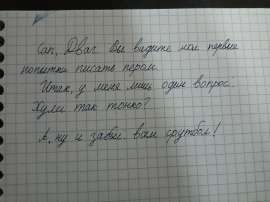 Сап, Двач. Вы видите мои первые
попытки писать пером.
Итак, у меня лишь один вопрос.
Хули так тонко?
А, ну и завёл вам футбол!